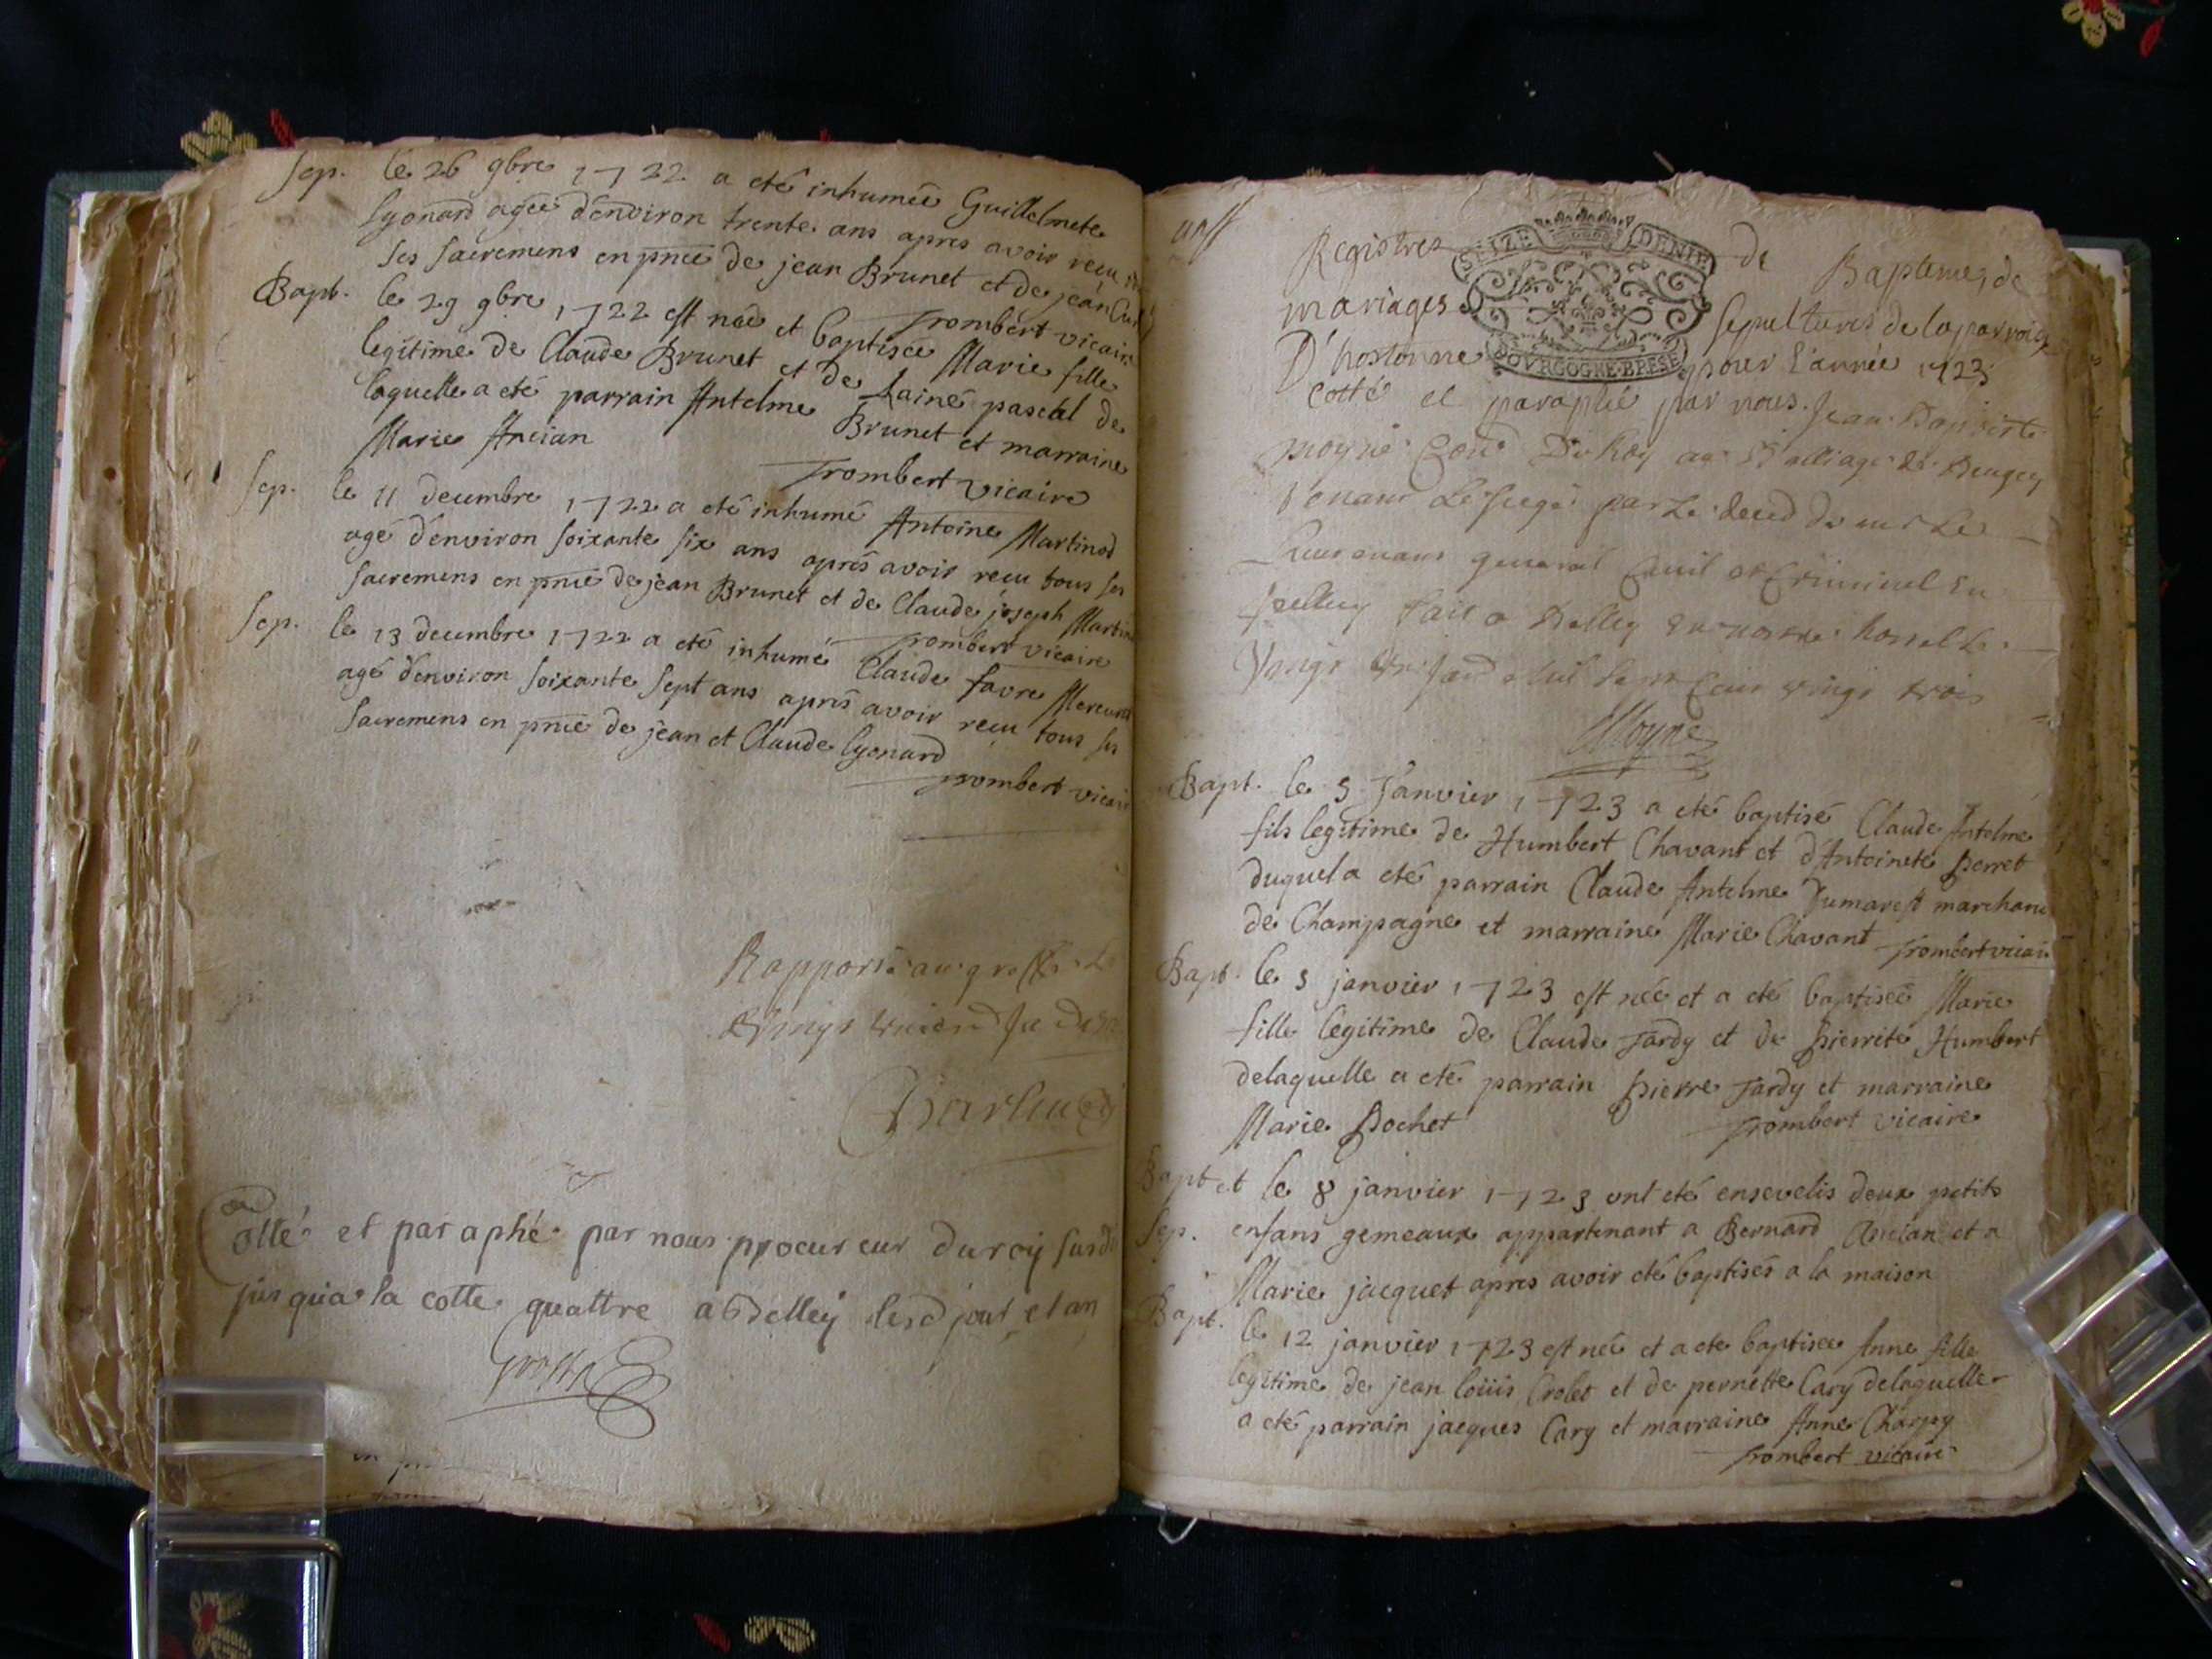 Sep. le 26 9bre 1722 a eté inhumée Guillelmete
Lyonard agée d'environ trente ans apres avoir reçu
ses sacremens en pnce de jean Brunet et de jean
Trombert vicaire
Bapt. le 29 9bre 1722 est née et baptisée Marie fille
legitime de Claude Brunet et de pascal de
laquelle a eté parrain Antelme Brunet et marraine
Marie Ancian
Trombert vicaire
Sep. le 11 decembre 1722 a eté inhumé Antoine Martinod
agé d'environ soixante six ans aprés avoir reçu tous ses
sacremens en pnce de jean Brunet et de Claude joseph
Trombert vicaire
Sep. le 13 decembre 1722 a eté inhumé Claude favre
agé d'environ soixante sept ans aprés avoir reçu tous ses
sacremens en pnce de jean et Claude Lyonard
Trombert vicai
Rapporté au greffe Le
Cotté et paraphé par nous procureur du roy
jusqu'a la cotte quattre a Belley lesd jour et an
Registres de Baptemes, de
SEIZE DENIE
mariages sepultures de la parroisse
D'hostonne pour l'année 1723
BOVRGOGNE·BRESE
cotté et paraphé par nous Jean Baptiste
moyne Du Roy au Balliage de Beugey
Tenant Le siege par Le deced de mr Le
Lieutenant general Civil et Criminel
fait a Belley
Vingt mil sept Cent vingt trois
Moyne
Bapt. le 5 Janvier 1723 a eté baptisé Claude Antelme
fils legitime de Humbert Chavant et d'Antoinete Perret
duquel a eté parrain Claude Antelme Dumarest marchand
de Champagne et marraine Marie Chavant Trombert vicai
Bapt. le 5 janvier 1723 est née et a eté baptisée Marie
fille legitime de Claude Tardy et de Pierrete Humbert
delaquelle a eté parrain Pierre Tardy et marraine
Marie Pochet Trombert vicaire
Bapt et le 8 janvier 1723 ont eté ensevelis deux petits
Sep. enfans gemeaux appartenant a Bernard Ancian et a
Marie jacquet apres avoir eté baptisés a la maison
Bapt. le 12 janvier 1723 est née et a eté baptisée Anne fille
legitime de jean loüis Crolet et de pernette Cary delaquelle
a eté parrain jacques Cary et marraine Anne Charpy
Trombert vicaire